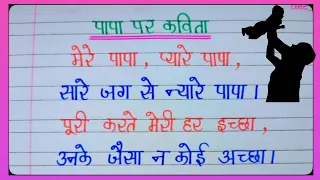 पापा पर कविता
मेरे पापा, प्यारे पापा,
सारे जग से न्यारे पापा।
पूरी करते मेरी हर इच्छा,
उनके जैसा न कोई अच्छा।